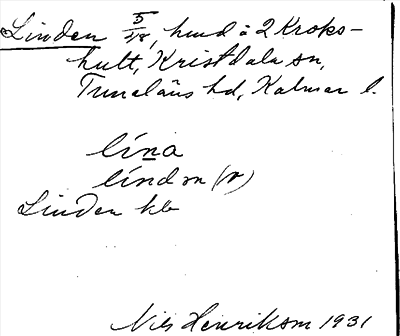 Linden 5/48, hmd å 2 Kroks-
hult, Kristdala sn,
Tunaläns hd, Kalmar l.
lína
líndn (r)
Linden kb
Nils Henrikson 1931